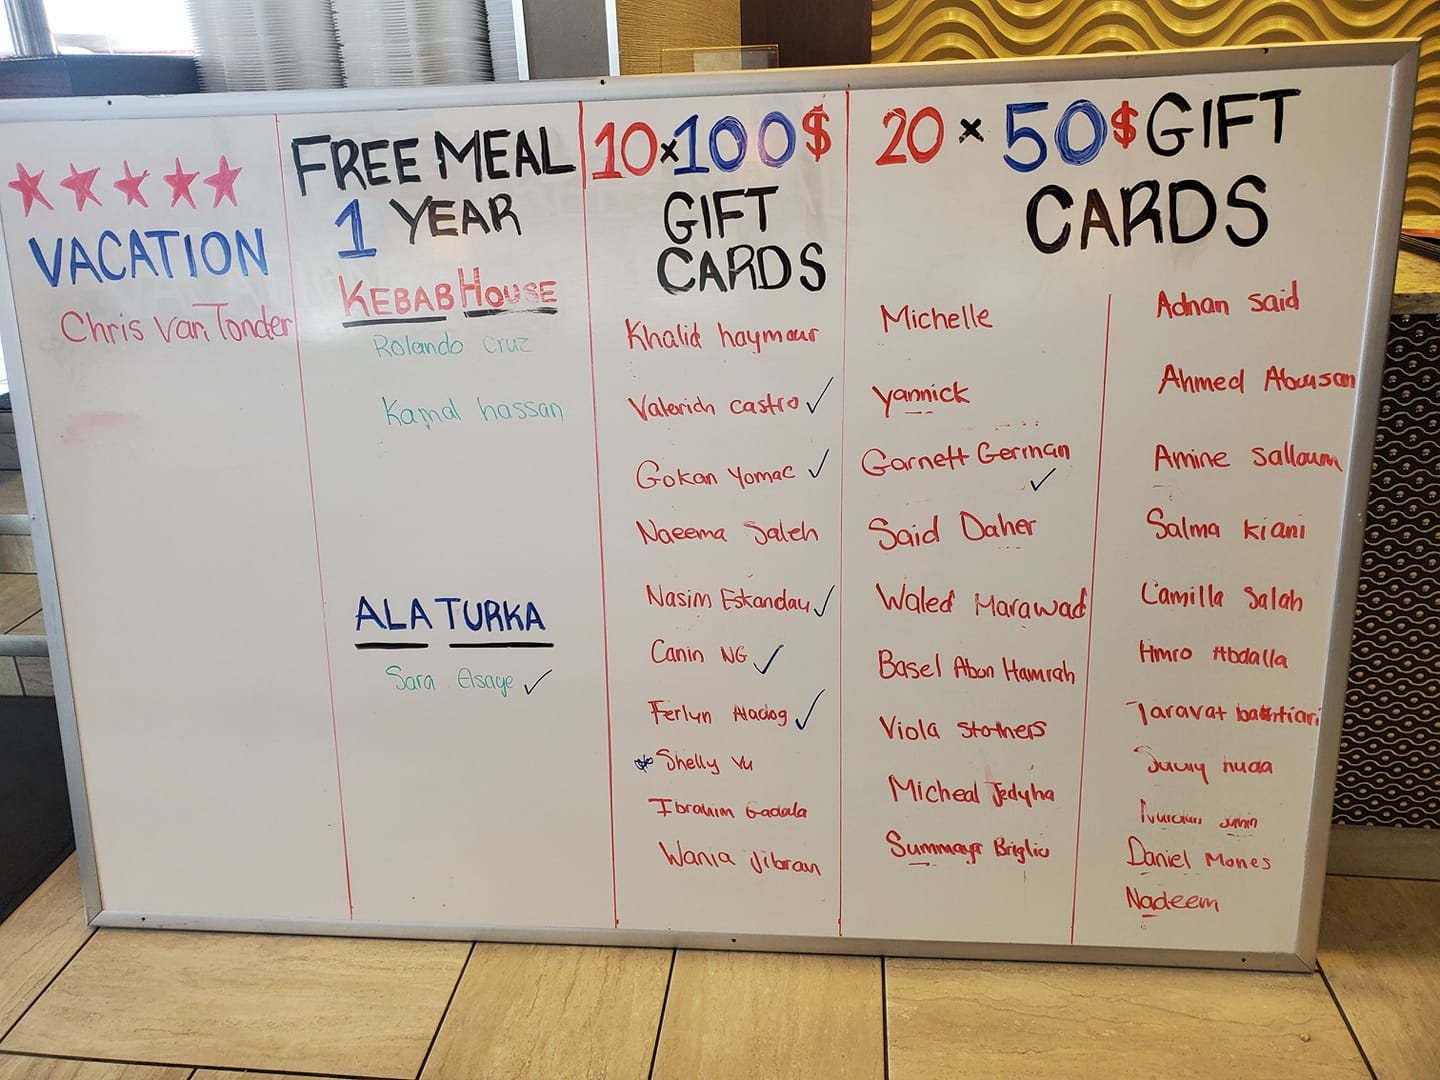 VACATION
Chris Van Tonder
FREE MEAL
1 YEAR
KEBAB HOUSE
Rolando Cruz
Kamal hassan
ALA TURKA
Sara Elsaye ✓
10 x 100 $
GIFT
CARDS
Khalid haymour
Valerich castro ✓
Gokan Yomac ✓
Naeema Saleh
Nasim Eskandau ✓
Canin NG ✓
Ferlyn Aladog ✓
Shelly Vu
Ibrahim Gadala
Wania Jibran
20 x 50 $ GIFT
CARDS
Michelle
Yannick
Garnett German ✓
Said Daher
Waled Marawad
Basel Abou Hamrah
Viola Stothers
Micheal Jedyha
Summayr Brigliu
Adnan said
Ahmed Abuusan
Amine Salloum
Salma Kiani
Camilla Salah
Amro Abdalla
Taravat bakhtiari
huda
Daniel Mones
Nadeem